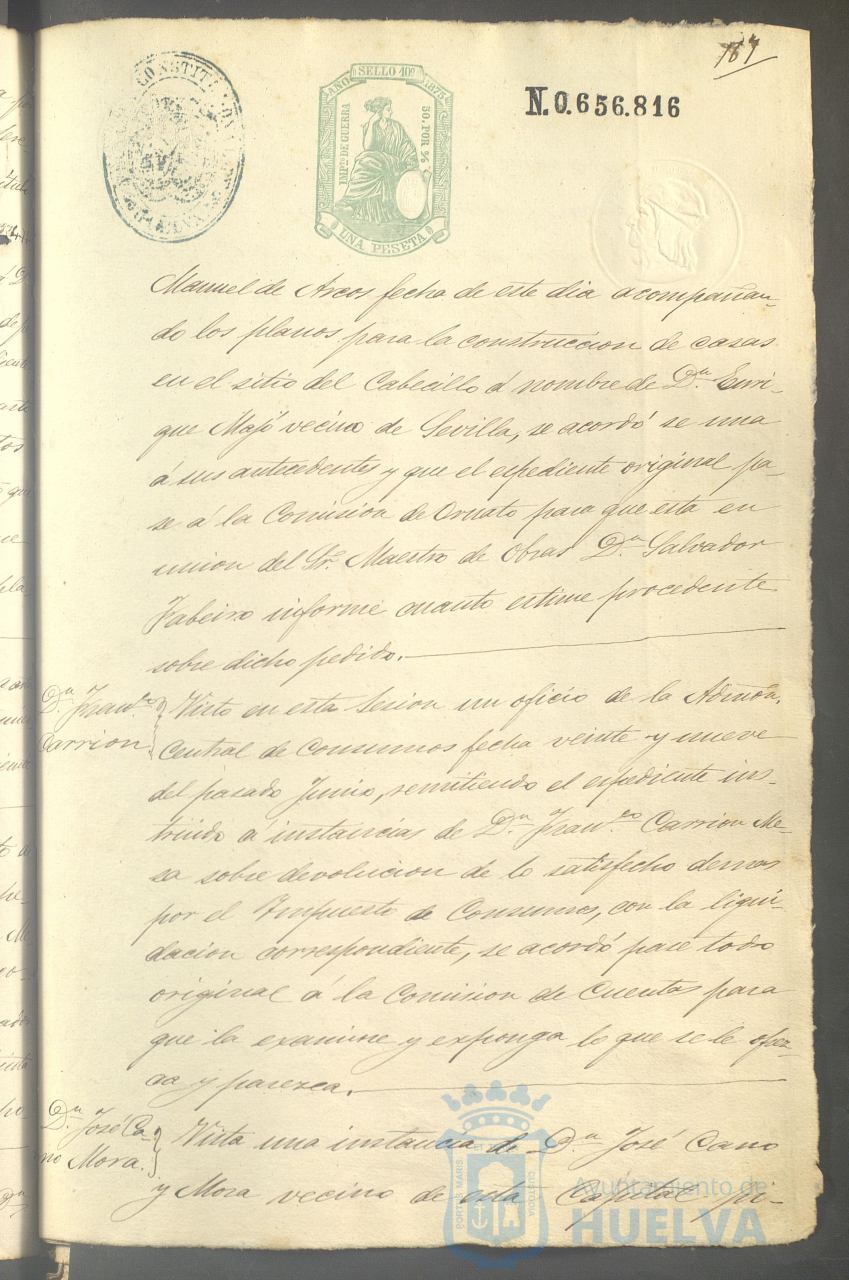 167
CONSTITU
AÑO SELLO 10º 1875
IMPto DE GUERRA
50. POR %
UNA PESETA
N.0.656.816
Manuel de Arcos fecha de este dia acompañan-
do los planos para la construccion de casas
en el sitio del Cabecillo á nombre de Dn Enri-
que Majó vecino de Sevilla, se acordó se una
á sus antecedentes y que el espediente original pa-
se á la Comision de Ornato para que esta en
union del Sr. Maestro de Obras Dn Salvador
Fabeiro informe cuanto estime procedente
sobre dicho pedido.
Dn Francco
Carrion.
Visto en esta Sesion un oficio de la Admon.
Central de Consumos fecha veinte y nueve
del pasado Junio, remitiendo el espediente ins-
truido á instancias de Dn Francco Carrion Me-
sa sobre devolucion de lo satisfecho demas
por el Impuesto de Consumos, con la liqui-
dacion correspondiente, se acordó pase todo
original á la Comision de Cuentas para
que la examine y exponga lo que se le ofrez-
ca y parezca.
Dn José Ca-
no Mora.
Vista una instancia de Dn José Cano
y Mora vecino de esta Capital pi-
PORTUS MARIS
CUSTODIA
Ayuntamiento de
HUELVA